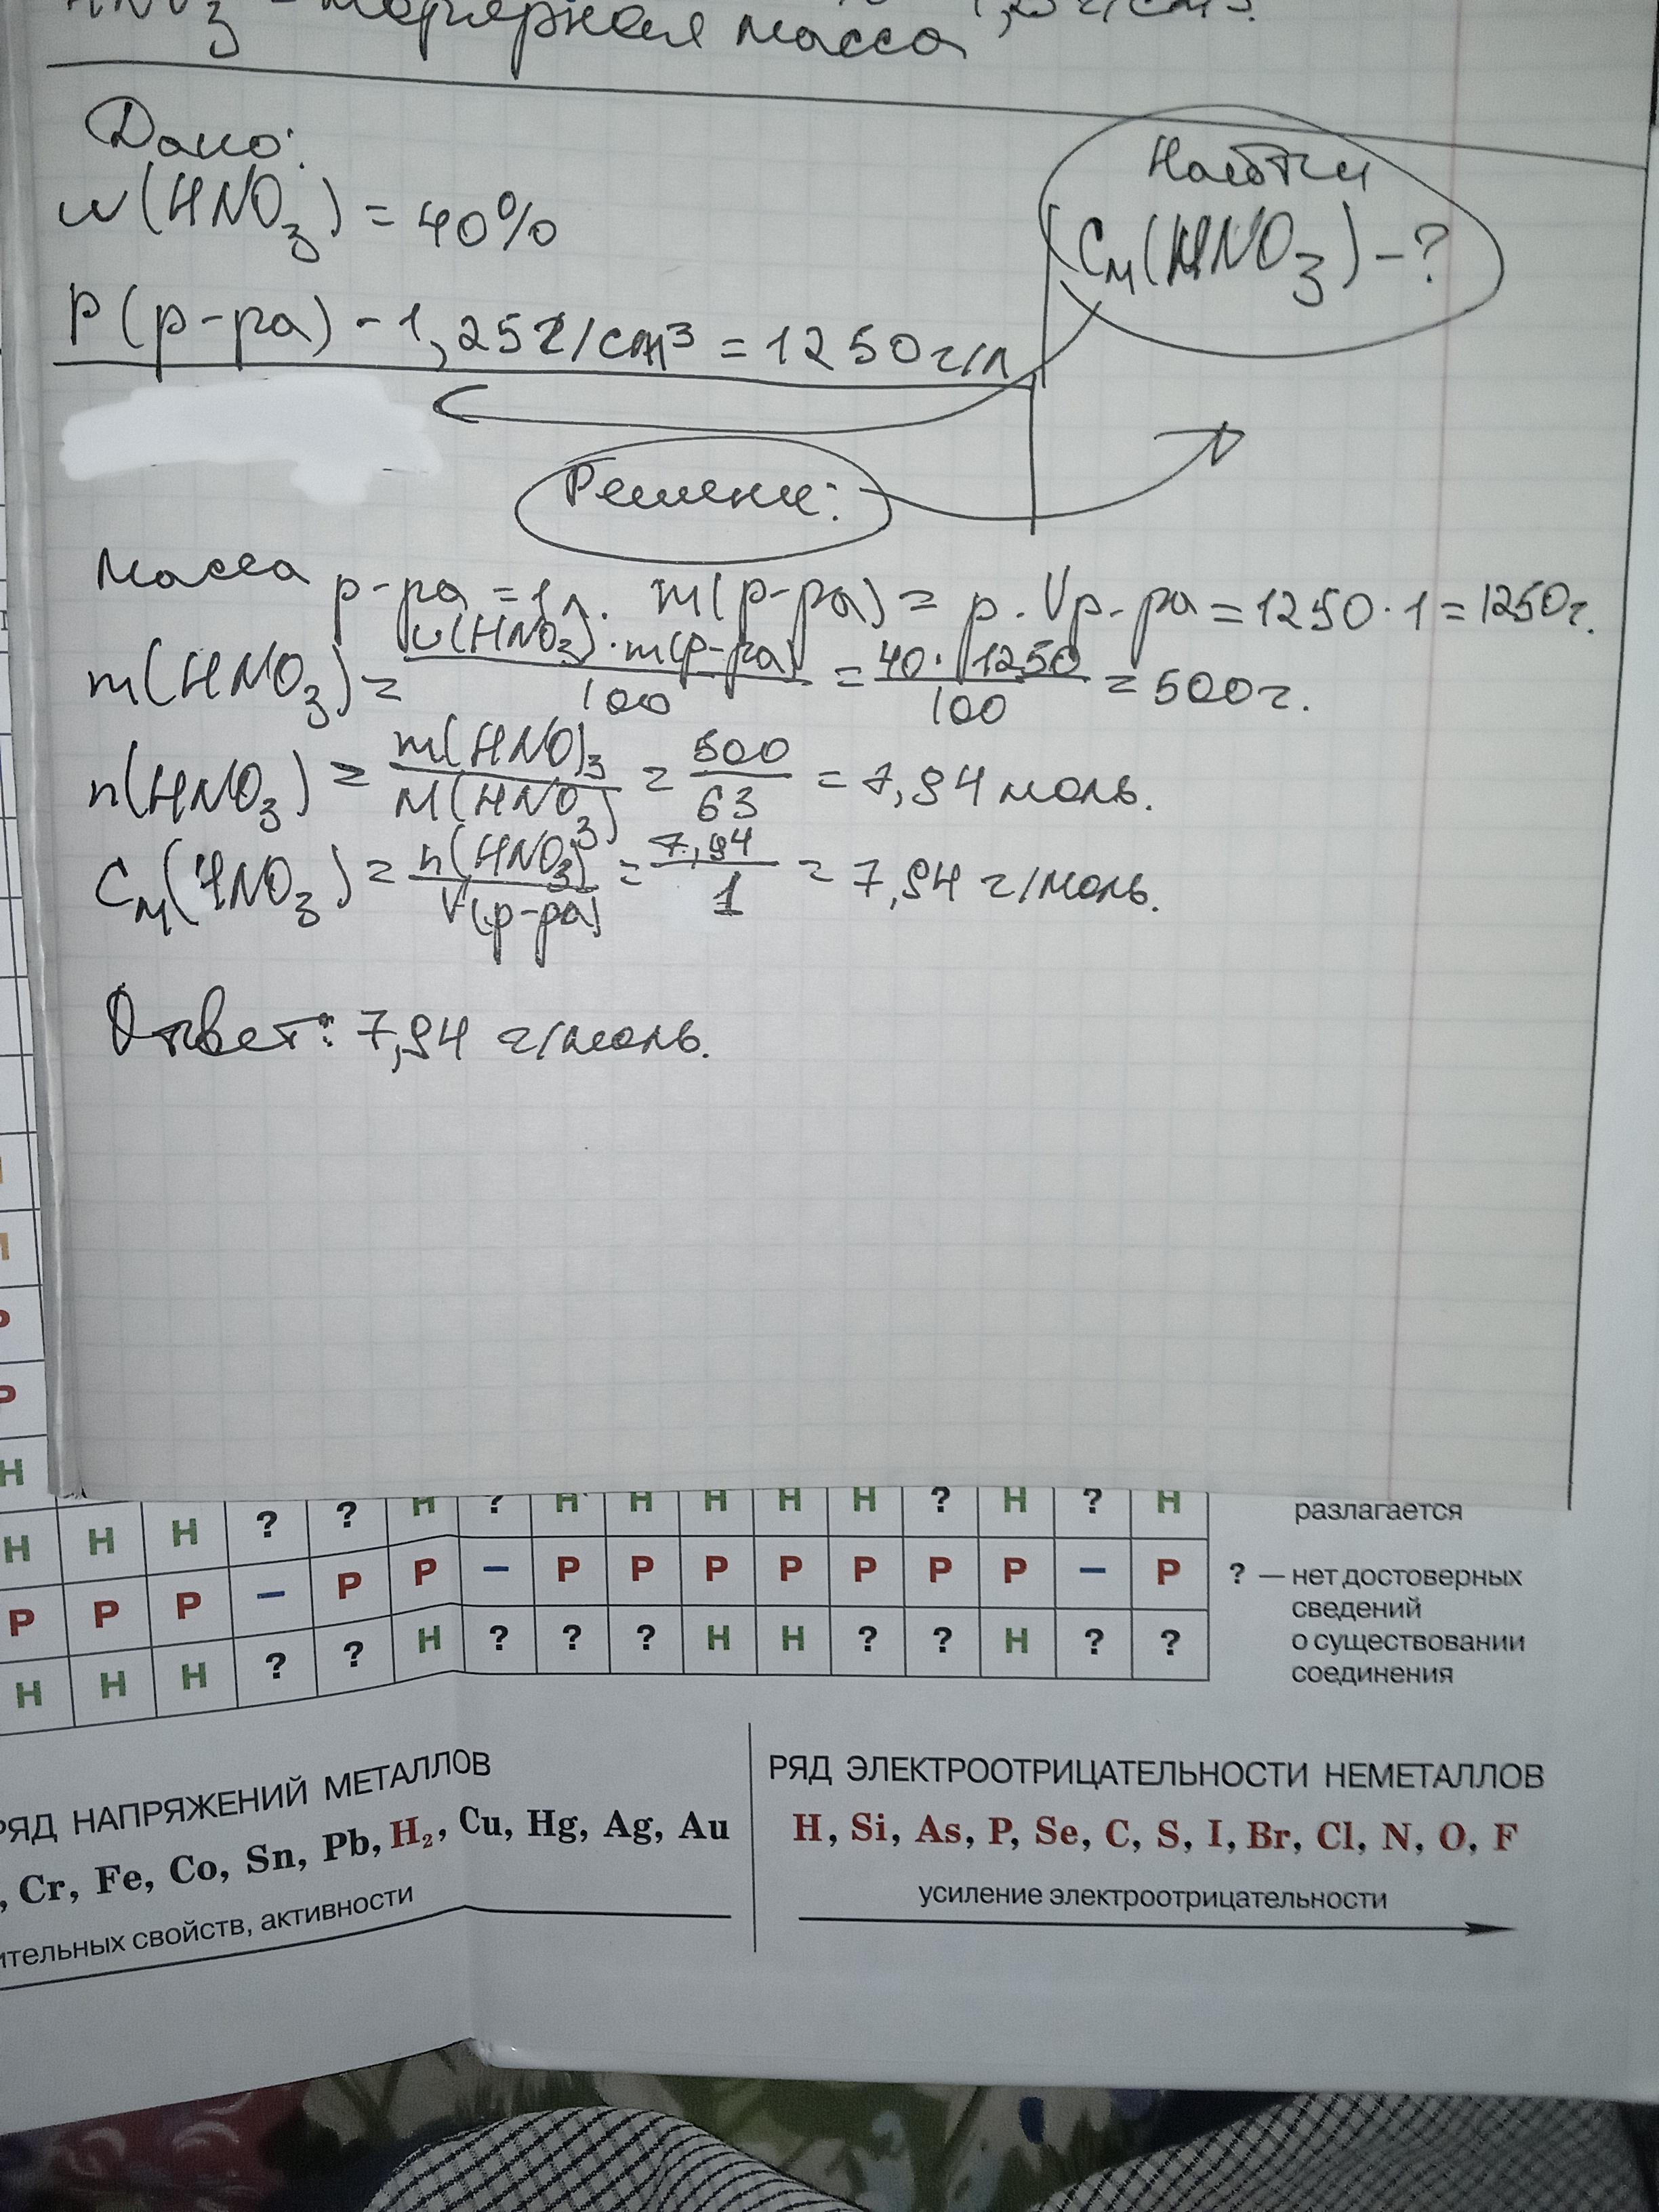 HNO3 - молярная масса 1,25 г/cm3.
Дано:
w(HNO3) = 40%
Найти
См(HNO3) - ?
P(р-ра) - 1,25г/cm3 = 1250г/л
Решение:
Масса р-ра = 1л. m(р-ра) = p · Vр-ра = 1250 · 1 = 1250г.
m(HNO3) = w(HNO3) · m(р-ра) / 100 = 40 · 1250 / 100 = 500г.
n(HNO3) = m(HNO)3 / M(HNO3) = 500 / 63 = 7,94 моль.
См(HNO3) = n(HNO3) / V(р-ра) = 7,94 / 1 = 7,94 г/моль.
Ответ: 7,94 г/моль.
Н
Н Н Н ? ? Н ? Н Н Н Н Н ? Н ? Н
Р Р Р – Р Р – Р Р Р Р Р Р Р – Р
Н Н Н ? ? Н ? ? ? Н Н ? ? Н ? ?
разлагается
? — нет достоверных
сведений
о существовании
соединения
РЯД НАПРЯЖЕНИЙ МЕТАЛЛОВ
, Cr, Fe, Co, Sn, Pb, H2, Cu, Hg, Ag, Au
ительных свойств, активности
РЯД ЭЛЕКТРООТРИЦАТЕЛЬНОСТИ НЕМЕТАЛЛОВ
H, Si, As, P, Se, C, S, I, Br, Cl, N, O, F
усиление электроотрицательности